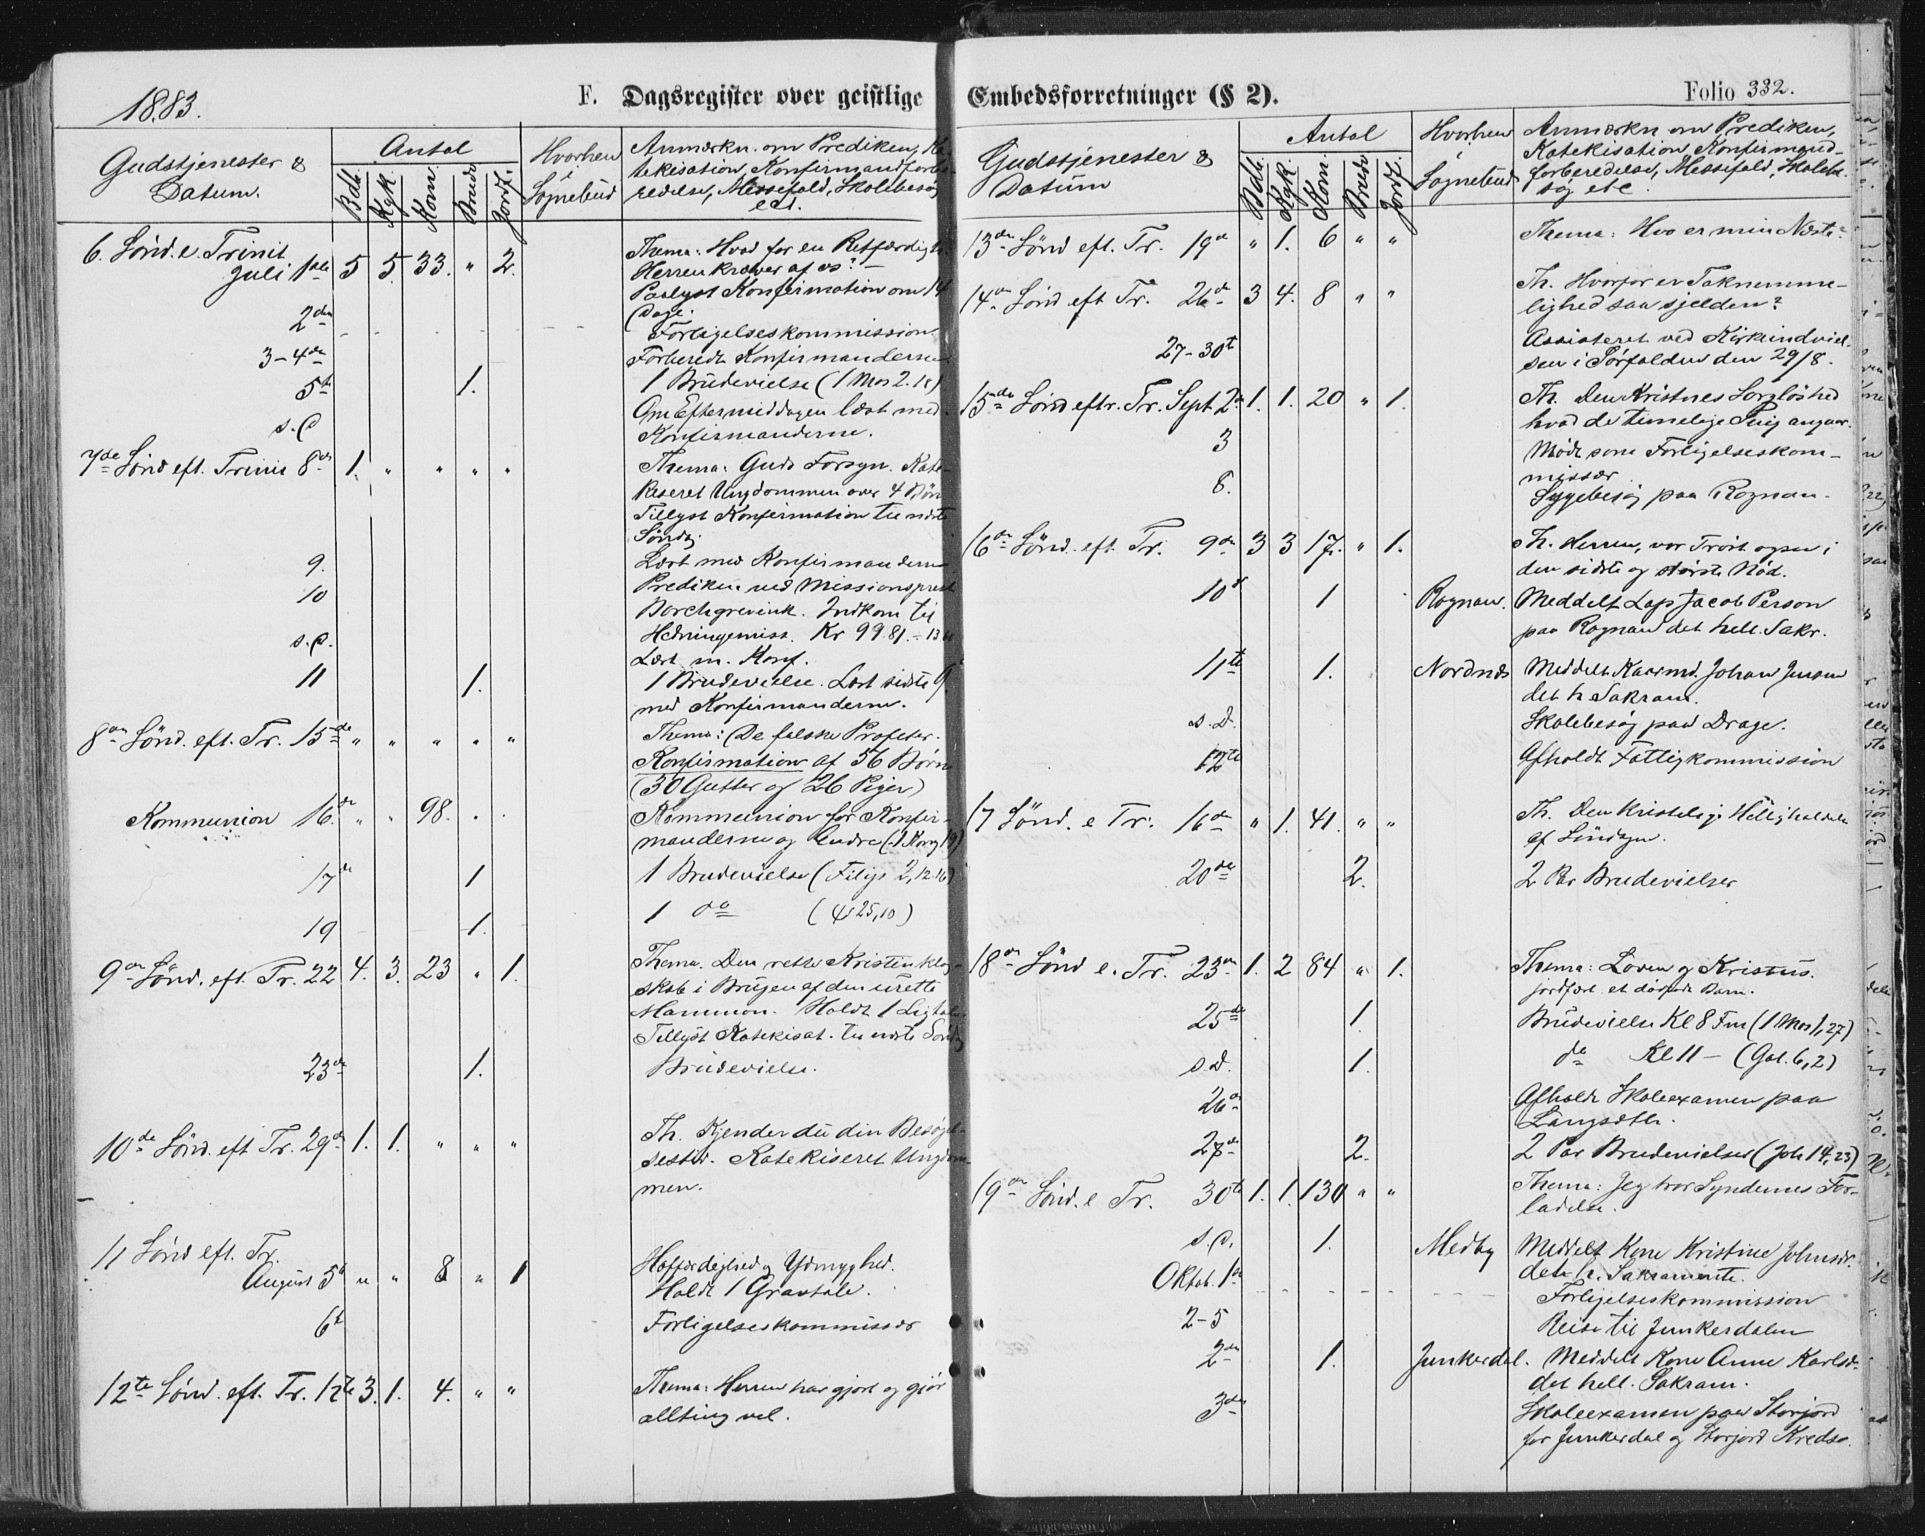 1883.
F. Dagsregister over geistlige
Gudstjenester &
Datum.
Antal
Bdt. Kgk. Kom. Brudv. Jordf.
Hvorhen
i
Sognebud
Anmærkn. om Prediken, Ka-
tekisation, Konfirmandforbe-
redelse, Messefald, Skolebesøg
ect.
6. Sønd. e. Trinit Thema: Hvad for en Retfærdigh.
Juli 1ste 5 5 33. " 2. Herren kræver af os? —
Paalyst Konfirmation om 14
Dage.
2den Forligelseskommission
3-4de Forberedt Konfirmanderne
5te 1. 1 Brudevielse (1 Mos 2. 18)
s. D Om Eftermiddagen læst med
Konfirmanderne.
7de Sønd eft. Trinit 8de 1. " " " " Thema: Guds Forsyn. Kate-
kiseret Ungdommen over 4 Bön
Tillyst Konfirmation til næste
Søndag
9. Læst med Konfirmanderne
10 Prediken ved Missionsprest
Borchgrevink. Indkom til
Hedningemiss. Kr 99.81.
s. D. Læst m. Konf.
11 1. 1 Brudevielse. Læst sidste G
med Konfirmanderne.
8de Sønd. eft. Tr. 15de " " " " " Thema: De falske Profeter.
Konfirmation af 56 Børn
(30 Gutter og 26 Piger)
Kommunion 16de " " 98. . Kommunion for Konfir-
manderne og Andre
17de 1 1 Brudevielse (Filip 2, 12-16)
19 1. 1 do (ψ 25,10)
9de Sønd. eft. Tr. 22 4. 3. 23 " 1. Thema. Den rette Kristenklog-
skab i Brugen af den urette
Mammon. Holdt 1 Ligtale
Tillyst Katekisat. til næste Søndag
23de 1. Brudevielse.
10de Sønd. eft Tr. 29de 1. 1. " " " Th. Kjender du din Besøgel-
sestid. Katekiseret Ungdom-
men.
11 Sønd eft. Tr. Hoffærdighed og Ydmyghed.
August 5te " " 8 " 1 Holdt 1 Gravtale.
6te Forligelseskommissær
12te Sønd. eft. Tr. 12te 3. 1. 4. " " Thema: Herren har gjort og gjør
allting vel.
Embedsforretninger (§ 2).
Folio 332.
Gudstjenester &
Datum
Antal
Bdt. Kgk. Kom. Brudv Jordf.
Hvorhen
i
Sognebud
Anmærkn om Prediken,
Katekisation, Konfirmand-
forberedelse, Messefald, Skolebe-
søg etc.
13de Sønd eft. Tr. 19de " 1. 6 " " Thema: Hvo er min Næste?
14de Sønd eft Tr. 26de 3 4. 8 " " Th. Hvorfor er Taknemme-
lighed saa sjelden?
27-30te Assisteret ved Kirkeindviel-
sen i Sørfolden den 29/8.
15de Sønd eftr. Tr. Sept 2de 1. 1. 20 " 1. Th. Den Kristnes Sorgløshed
hvad de timelige Ting angaar.
3 Mødt som Forligelseskom-
missær.
8. Sygebesøg paa Rognan.
16de Sønd. eft. Tr. 9de 3 3 17. " 1. Th. Herren, vor Trøst ogsaa i
den sidste og største Nød.
10de 1 Rognan. Meddelt Lap Jacob Person
paa Rognan det hell. Sakr.
11te 1. Nordnæs Meddelt Kaarmd. Johan Jensen
det h Sakram.
s. d. Skolebesøg paa Drage.
12te Afholdt Fattigkommission
17 Sønd. e Tr. 16de " 1. 41. " " Th. Den Kristelige Helligholdelse
af Søndagen.
20de 2. 2 Par Brudevielser
18de Sønd e. Tr. 23de 1. 2 84 " 1. Thema: Loven og Kristus.
Jordfæst et dødfødt Barn.
25de 1. Brudevielse Kl 8 Fm (1 Mos 1, 27)
s. d. 1. do Kl 11 — (Gal. 6, 2)
26de Afholdt Skoleexamen paa
Langsetr.
27de 2. 2 Par Brudevielser (Joh 14, 23)
19de Sønd. e Tr. 30te 1. 1. 130 " " Thema: Jeg tror Syndernes For-
ladelse.
s. D. 1. Medby Meddelt Kone Kristine Johnsdr.
det h. Sakramente.
Oktob. 1ste Forligelseskommission
2-5 Reise til Junkerdalen
2den 1. Junkerdal. Meddelt Kone Anne Karlsd.
det hell. Sakram.
3die Skoleexamen paa Storjord
for Junkerdal og Storjord Kredse.